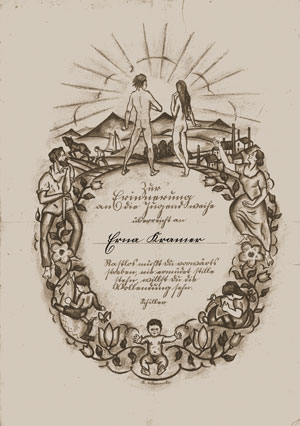 Zur
Erinnerung
an die Jugendweihe
überreicht an
Erna Kramer
Rastlos mußt Du vorwärts
streben, nie ermüdet stille
stehn, willst Du die
Vollendung sehn.
Schiller